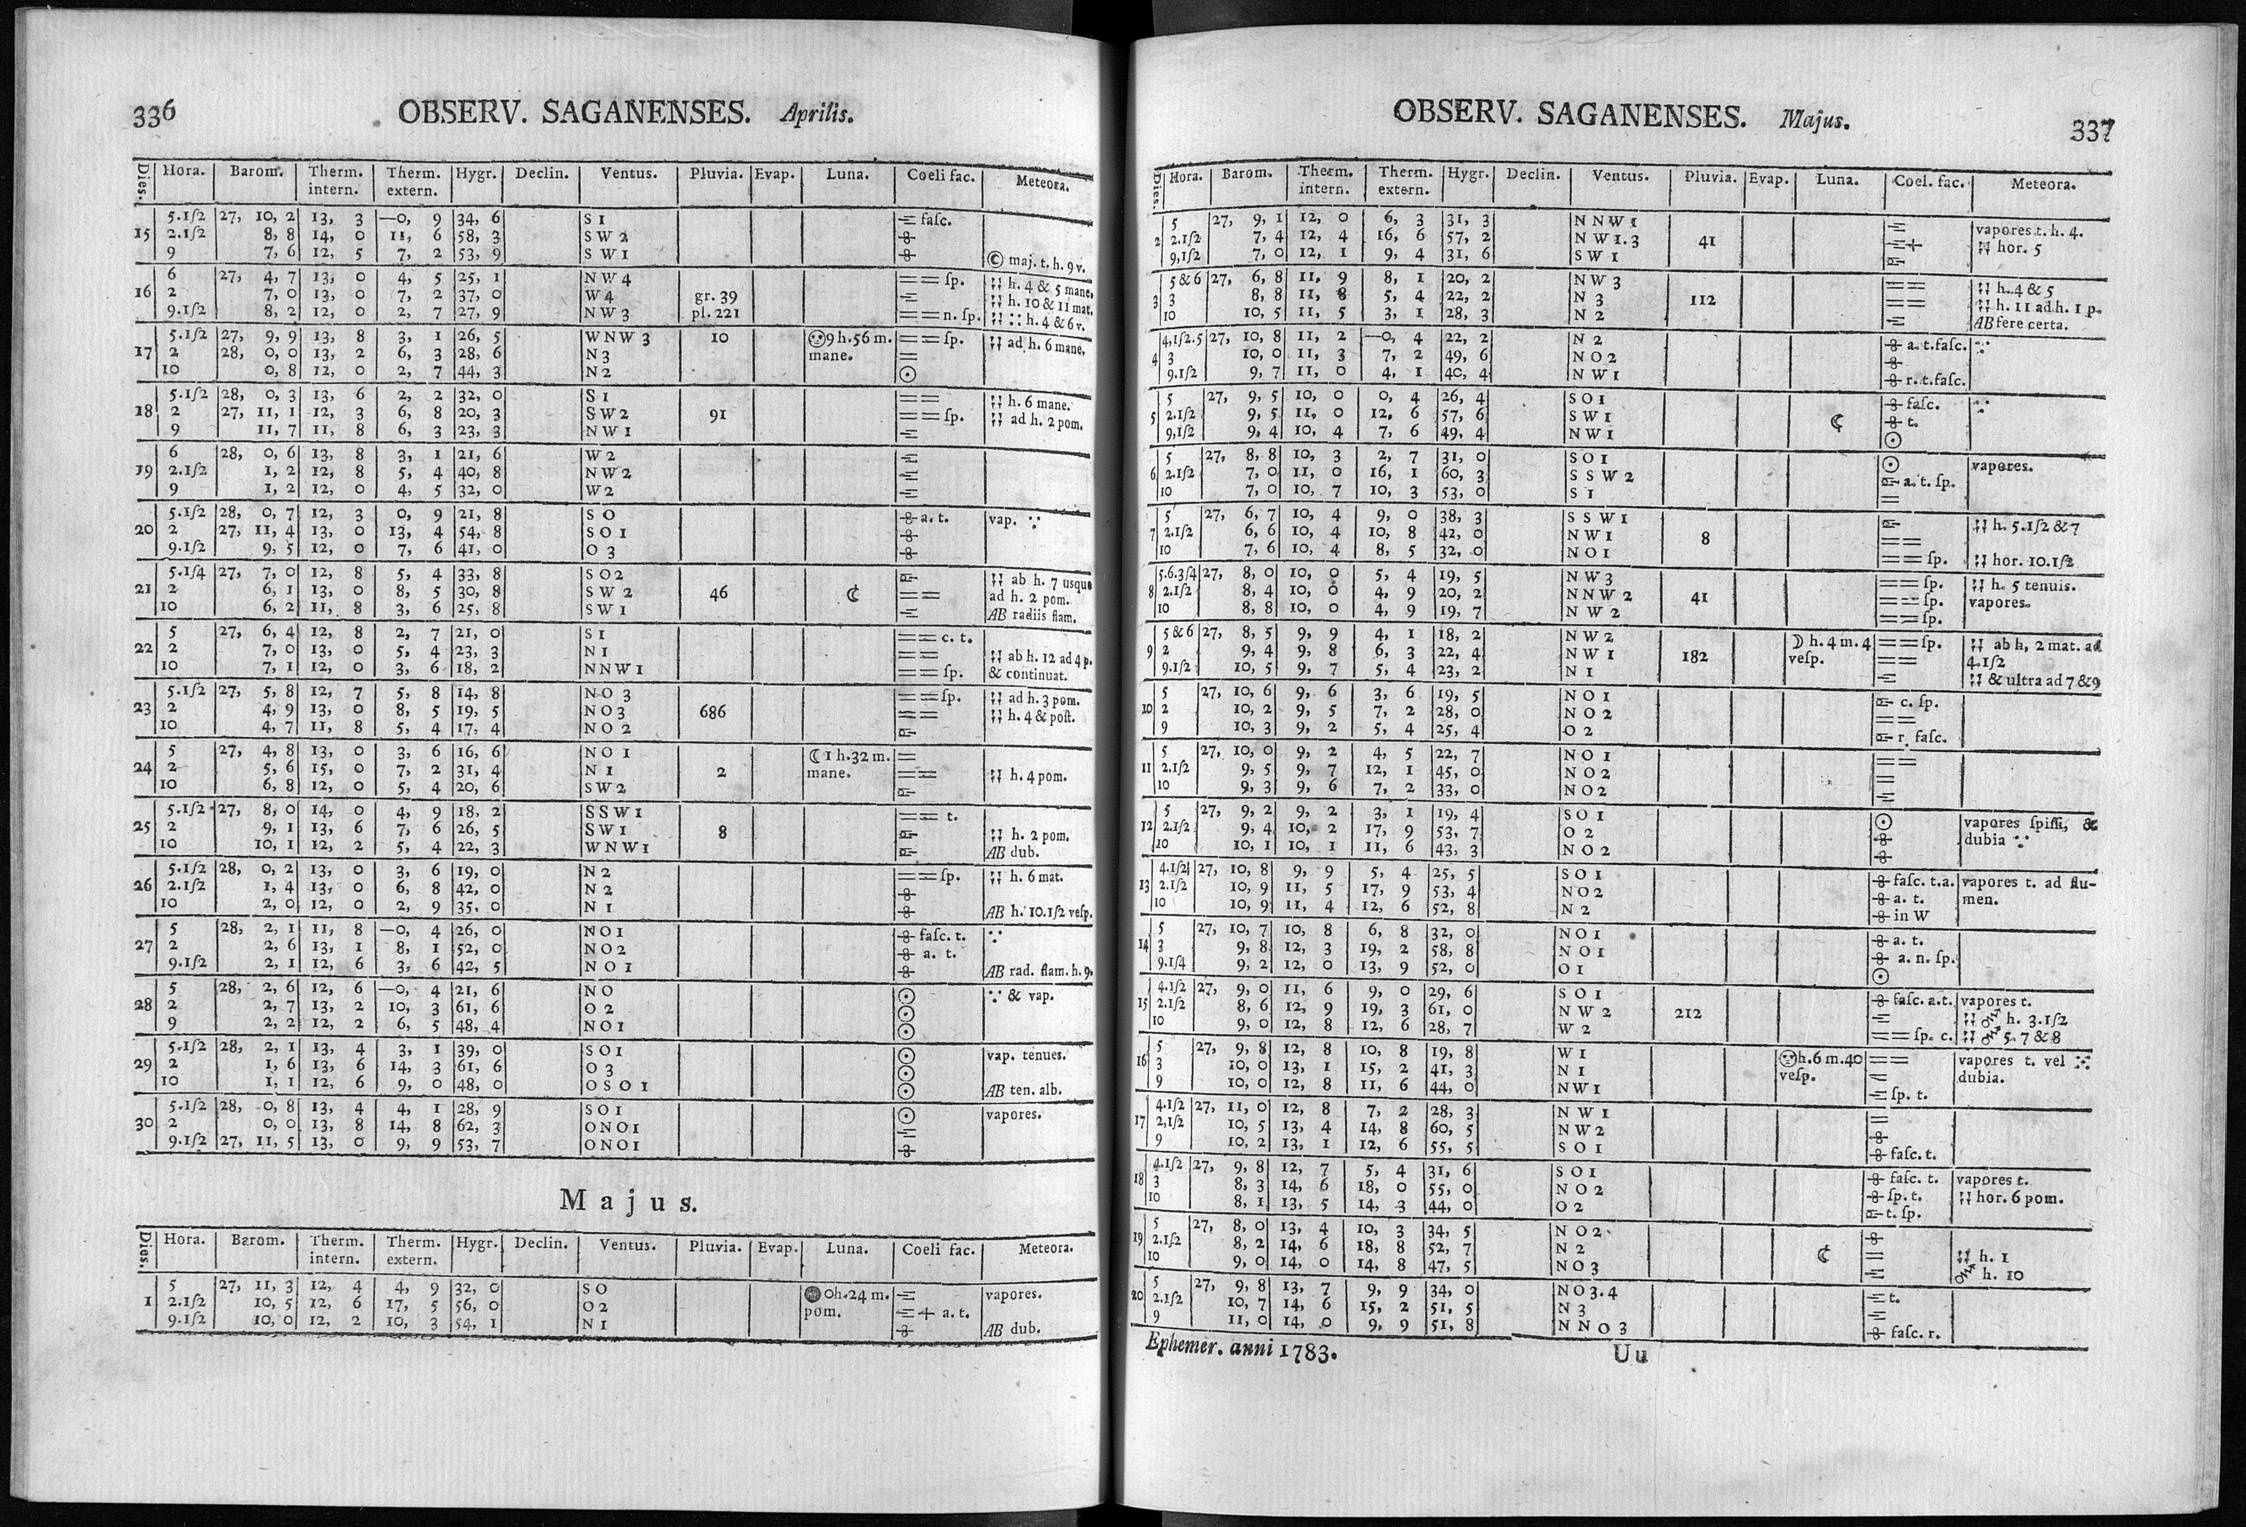 336 OBSERV. SAGANENSES. Aprilis.
Dies. Hora. Barom. Therm. intern. Therm. extern. Hygr. Declin. Ventus. Pluvia. Evap. Luna. Coeli fac. Meteora.
5.1/2 27, 10, 2 13, 3 —0, 9 34, 6 S 1 faſc.
15 2.1/2 8, 8 14, 0 11, 6 58, 3 S W 2
9 7, 6 12, 5 7, 2 53, 9 S W 1 maj. t. h. 9 v.
6 27, 4, 7 13, 0 4, 5 25, 1 N W 4 ſp. h. 4 & 5 mane,
16 2 7, 0 13, 0 7, 2 37, 0 W 4 gr. 39 h. 10 & 11 mat.
9.1/2 8, 2 12, 0 2, 7 27, 9 N W 3 pl. 221 n. ſp. h. 4 & 6 v.
5.1/2 27, 9, 9 13, 8 3, 1 26, 5 W N W 3 10 9 h. 56 m. ſp. ad h. 6 mane,
17 2 28, 0, 0 13, 2 6, 3 28, 6 N 3 mane.
10 0, 8 12, 0 2, 7 44, 3 N 2
5.1/2 28, 0, 3 13, 6 2, 2 32, 0 S 1 h. 6 mane.
18 2 27, 11, 1 12, 3 6, 8 20, 3 S W 2 91 ſp. ad h. 2 pom.
9 11, 7 11, 8 6, 3 23, 3 N W 1
6 28, 0, 6 13, 8 3, 1 21, 6 W 2
19 2.1/2 1, 2 12, 8 5, 4 40, 8 N W 2
9 1, 2 12, 0 4, 5 32, 0 W 2
5.1/2 28, 0, 7 12, 3 0, 9 21, 8 S O a. t. vap.
20 2 27, 11, 4 13, 0 13, 4 54, 8 S O 1
9.1/2 9, 5 12, 0 7, 6 41, 0 O 3
5.1/4 27, 7, 0 12, 8 5, 4 33, 8 S O 2 ab h. 7 usque
21 2 6, 1 13, 0 8, 5 30, 8 S W 2 46 ☾ ad h. 2 pom.
10 6, 2 11, 8 3, 6 25, 8 S W 1 AB radiis flam.
5 27, 6, 4 12, 8 2, 7 21, 0 S 1 c. t.
22 2 7, 0 13, 0 5, 4 23, 3 N 1 ab h. 12 ad 4 p.
10 7, 1 12, 0 3, 6 18, 2 N N W 1 ſp. & continuat.
5.1/2 27, 5, 8 12, 7 5, 8 14, 8 N O 3 ſp. ad h. 3 pom.
23 2 4, 9 13, 0 8, 5 19, 5 N O 3 686 h. 4 & poſt.
10 4, 7 11, 8 5, 4 17, 4 N O 2
5 27, 4, 8 13, 0 3, 6 16, 6 N O 1 ☾ 1 h. 32 m.
24 2 5, 6 15, 0 7, 2 31, 4 N 1 2 mane. h. 4 pom.
10 6, 8 12, 0 5, 4 20, 6 S W 2
5.1/2 27, 8, 0 14, 0 4, 9 18, 2 S S W 1 t.
25 2 9, 1 13, 6 7, 6 26, 5 S W 1 8 h. 2 pom.
10 10, 1 12, 2 5, 4 22, 3 W N W 1 AB dub.
5.1/2 28, 0, 2 13, 0 3, 6 19, 0 N 2 ſp. h. 6 mat.
26 2.1/2 1, 4 13, 0 6, 8 42, 0 N 2
10 2, 0 12, 0 2, 9 35, 0 N 1 AB h. 10.1/2 veſp.
5 28, 2, 1 11, 8 —0, 4 26, 0 N O 1 faſc. t.
27 2 2, 6 13, 1 8, 1 52, 0 N O 2 a. t.
9.1/2 2, 1 12, 6 3, 6 42, 5 N O 1 AB rad. flam. h. 9.
5 28, 2, 6 12, 6 —0, 4 21, 6 N O & vap.
28 2 2, 7 13, 2 10, 3 61, 6 O 2
9 2, 2 12, 2 6, 5 48, 4 N O 1
5.1/2 28, 2, 1 13, 4 3, 1 39, 0 S O 1 vap. tenues.
29 2 1, 6 13, 6 14, 3 61, 6 O 3
10 1, 1 12, 6 9, 0 48, 0 O S O 1 AB ten. alb.
5.1/2 28, 0, 8 13, 4 4, 1 28, 9 S O 1 vapores.
30 2 0, 0 13, 8 14, 8 62, 3 O N O 1
9.1/2 27, 11, 5 13, 0 9, 9 53, 7 O N O 1
Majus.
Dies. Hora. Barom. Therm. intern. Therm. extern. Hygr. Declin. Ventus. Pluvia. Evap. Luna. Coeli fac. Meteora.
5 27, 11, 3 12, 4 4, 9 32, 0 S O 0 h. 24 m. vapores.
1 2.1/2 10, 5 12, 6 17, 5 56, 0 O 2 pom. + a. t.
9.1/2 10, 0 12, 2 10, 3 54, 1 N 1 AB dub.
OBSERV. SAGANENSES. Majus. 337
Dies. Hora. Barom. Therm. intern. Therm. extern. Hygr. Declin. Ventus. Pluvia. Evap. Luna. Coel. fac. Meteora.
5 27, 9, 1 12, 0 6, 3 31, 3 N N W 1 vapores t. h. 4.
2 2.1/2 7, 4 12, 4 16, 6 57, 2 N W 1.3 41 + hor. 5
9,1/2 7, 0 12, 1 9, 4 31, 6 S W 1
5 & 6 27, 6, 8 11, 9 8, 1 20, 2 N W 3 h. 4 & 5
3 3 8, 8 11, 8 5, 4 22, 2 N 3 112 h. 11 ad h. 1 p.
10 10, 5 11, 5 3, 1 28, 3 N 2 AB fere certa.
4,1/2.5 27, 10, 8 11, 2 —0, 4 22, 2 N 2 a. t. faſc.
4 3 10, 0 11, 3 7, 2 49, 6 N O 2
9.1/2 9, 7 11, 0 4, 1 40, 4 N W 1 r. t. faſc.
5 27, 9, 5 10, 0 0, 4 26, 4 S O 1 faſc.
5 2.1/2 9, 5 11, 0 12, 6 57, 6 S W 1 ☾ t.
9,1/2 9, 4 10, 4 7, 6 49, 4 N W 1
5 27, 8, 8 10, 3 2, 7 31, 0 S O 1 vapores.
6 2.1/2 7, 0 11, 0 16, 1 60, 3 S S W 2 a. t. ſp.
10 7, 0 10, 7 10, 3 53, 0 S 1
5 27, 6, 7 10, 4 9, 0 38, 3 S S W 1 h. 5.1/2 & 7
7 2.1/2 6, 6 10, 4 10, 8 42, 0 N W 1 8
10 7, 6 10, 4 8, 5 32, 0 N O 1 ſp. hor. 10.1/2
5.6.3/4 27, 8, 0 10, 0 5, 4 19, 5 N W 3 ſp. h. 5 tenuis.
8 2.1/2 8, 4 10, 0 4, 9 20, 2 N N W 2 41 ſp. vapores.
10 8, 8 10, 0 4, 9 19, 7 N W 2 ſp.
5 & 6 27, 8, 5 9, 9 4, 1 18, 2 N W 2 ☽ h. 4 m. 4 ſp. ab h, 2 mat. ad
9 2 9, 4 9, 8 6, 3 22, 4 N W 1 182 veſp. 4.1/2
9.1/2 10, 5 9, 7 5, 4 23, 2 N 1 & ultra ad 7 & 9
5 27, 10, 6 9, 6 3, 6 19, 5 N O 1 c. ſp.
10 2 10, 2 9, 5 7, 2 28, 0 N O 2
9 10, 3 9, 2 5, 4 25, 4 O 2 r. faſc.
5 27, 10, 0 9, 2 4, 5 22, 7 N O 1
11 2.1/2 9, 5 9, 7 12, 1 45, 0 N O 2
10 9, 3 9, 6 7, 2 33, 0 N O 2
5 27, 9, 2 9, 2 3, 1 19, 4 S O 1 vapores ſpiſſi, &
12 2.1/2 9, 4 10, 2 17, 9 53, 7 O 2 dubia
10 10, 1 10, 1 11, 6 43, 3 N O 2
4.1/2 27, 10, 8 9, 9 5, 4 25, 5 S O 1 faſc. t. a. vapores t. ad flu-
13 2.1/2 10, 9 11, 5 17, 9 53, 4 N O 2 a. t. men.
10 10, 9 11, 4 12, 6 52, 8 N 2 in W
5 27, 10, 7 10, 8 6, 8 32, 0 N O 1 a. t.
14 3 9, 8 12, 3 19, 2 58, 8 N O 1 a. n. ſp.
9.1/4 9, 2 12, 0 13, 9 52, 0 O 1
4.1/2 27, 9, 0 11, 6 9, 0 29, 6 S O 1 faſc. a.t. vapores t.
15 2.1/2 8, 6 12, 9 19, 3 61, 0 N W 2 212 h. 3.1/2
10 9, 0 12, 8 12, 6 28, 7 W 2 ſp. c. 5. 7 & 8
5 27, 9, 8 12, 8 10, 8 19, 8 W 1 h. 6 m. 40 vapores t. vel
16 3 10, 0 13, 1 15, 2 41, 3 N 1 veſp. dubia.
9 10, 0 12, 8 11, 6 44, 0 N W 1 ſp. t.
4.1/2 27, 11, 0 12, 8 7, 2 28, 3 N W 1
17 2,1/2 10, 5 13, 4 14, 8 60, 5 N W 2
9 10, 2 13, 1 12, 6 55, 5 S O 1 faſc. t.
4.1/2 27, 9, 8 12, 7 5, 4 31, 6 S O 1 faſc. t. vapores t.
18 3 8, 3 14, 6 18, 0 55, 0 N O 2 ſp. t. hor. 6 pom.
10 8, 1 13, 5 14, 3 44, 0 O 2 t. ſp.
5 27, 8, 0 13, 4 10, 3 34, 5 N O 2
19 2.1/2 8, 2 14, 6 18, 8 52, 7 N 2 ☾ h. 1
10 9, 0 14, 0 14, 8 47, 5 N O 3 h. 10
5 27, 9, 8 13, 7 9, 9 34, 0 N O 3.4 t.
20 2.1/2 10, 7 14, 6 15, 2 51, 5 N 3
9 11, 0 14, 0 9, 9 51, 8 N N O 3 faſc. r.
Ephemer. anni 1783. U u